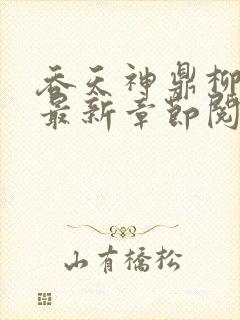 吞天神鼎柳
最新章节阅
山有橋松